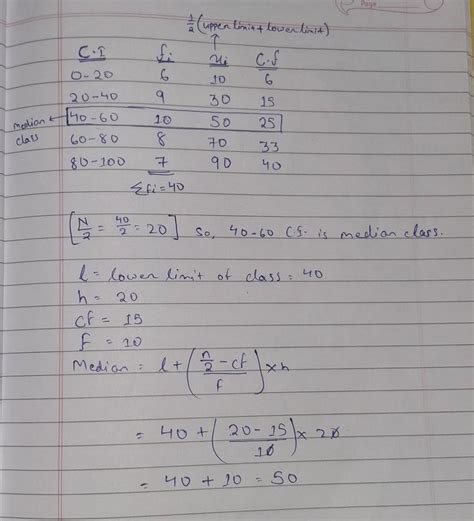 Page
1/2 (upper limit + lower limit)
↑
C.I fi xi C.f
0-20 6 10 6
20-40 9 30 15
median class ← 40-60 10 50 25
60-80 8 70 33
80-100 7 90 40
Σfi = 40
[N/2 = 40/2 = 20] so, 40-60 Cf. is median class.
l = lower limit of class = 40
h = 20
cf = 15
f = 10
Median = l + ((n/2 - cf)/f) × h
= 40 + ((20 - 15)/10) × 20
= 40 + 10 = 50